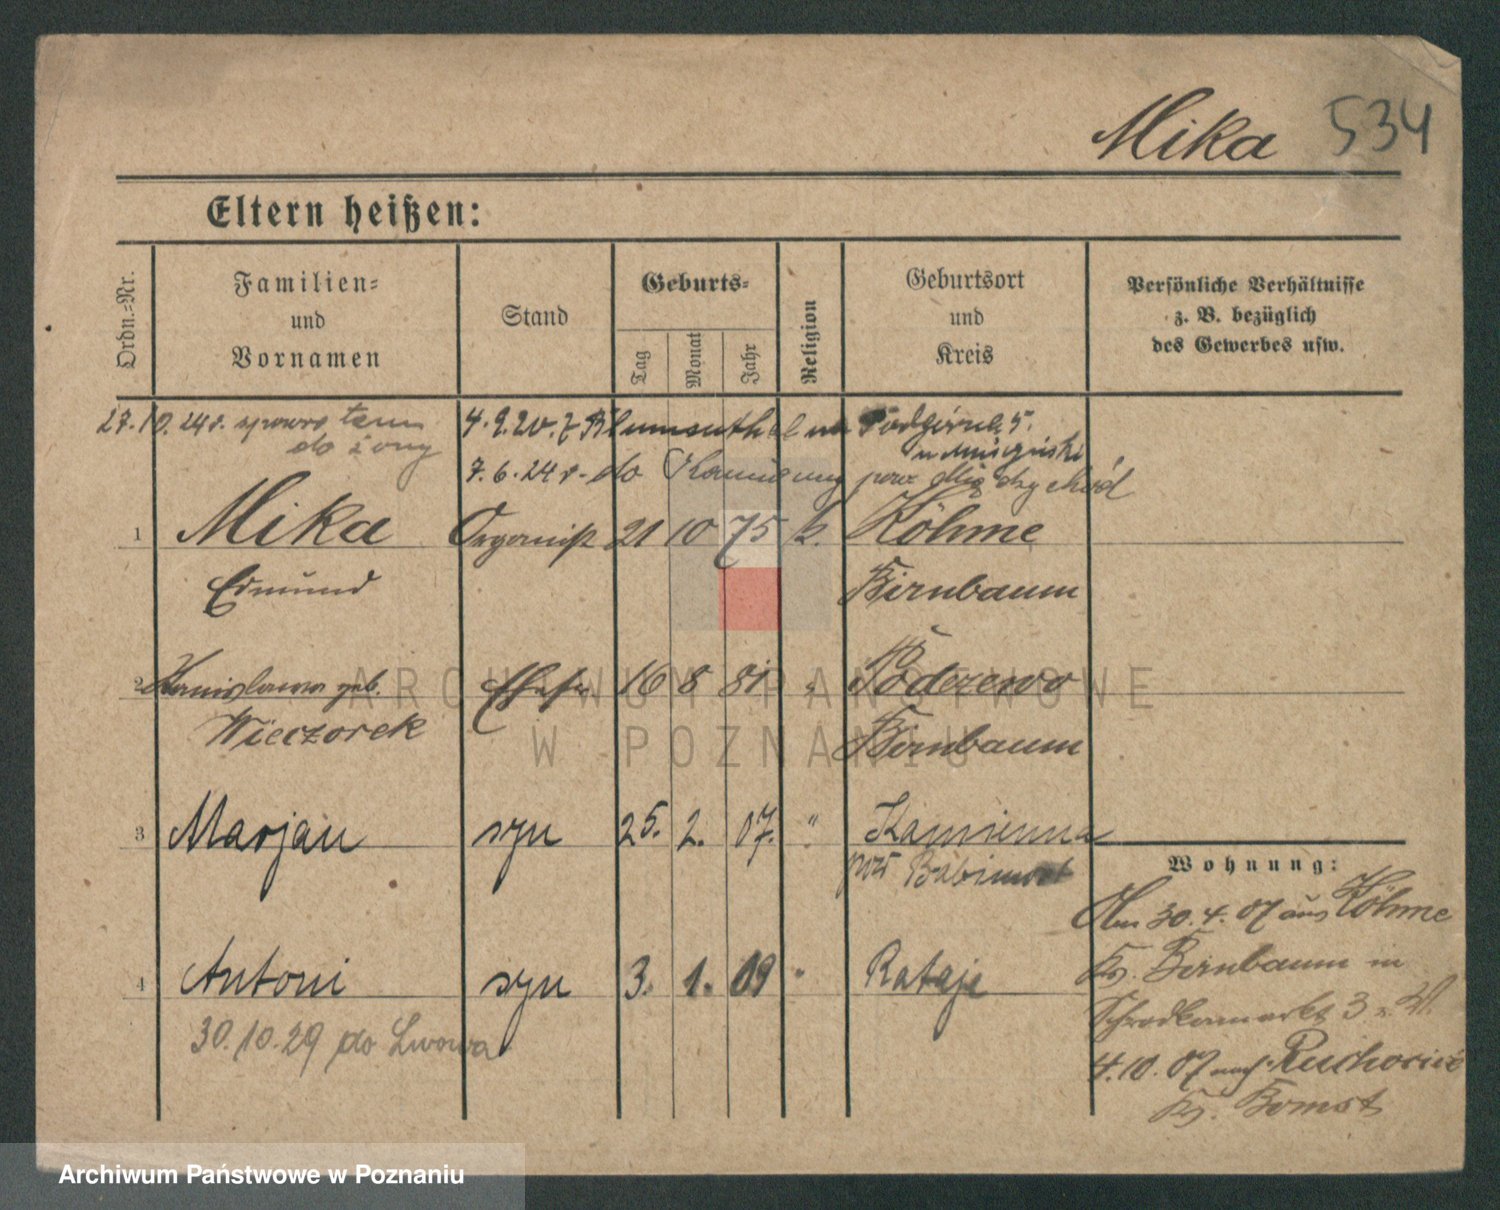 Mika 534
Eltern heißen:
Ordn.-Nr.
Familien-
und
Vornamen
Stand
Geburts-
Tag
Monat
Jahr
Religion
Geburtsort
und
Kreis
Persönliche Verhältnisse
z. B. bezüglich
des Gewerbes usw.
27.10.24r. sprowr. tam
do żony
4.9.20. z Blumenthal na Podgórna 5.
7.6.24r. do Kamienny pow Międzychód
1 Mika Organist 21 10 75 k. Köhme
Edmund Birnbaum
2 Stanislawa geb. Ehefr. 16 8 81 " Podrzewo
Wieczorek Birnbaum
3 Marjan syn 25. 2. 07. " Kamienna
pow Babimost
Wohnung:
Am 30.4.07 aus Köhme
Kr. Birnbaum in
Schrodkamarkt 3
4 Antoni syn 3. 1. 09 " Rataje
30.10.29 do Lwowa
4.10.07 nach Ruchocice
Kr. Bomst
ARCHIWUM PAŃSTWOWE
W POZNANIU
Archiwum Państwowe w Poznaniu